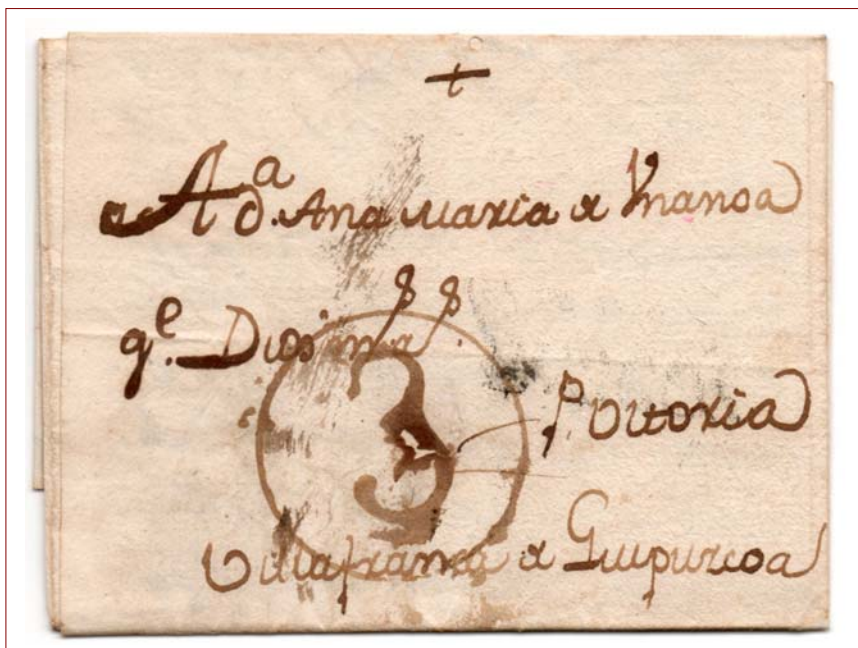 +
A d.ª Ana Maria de Ynanoa
q.e Dios
3
P. Vitoria
Villafranca de Guipuzcoa